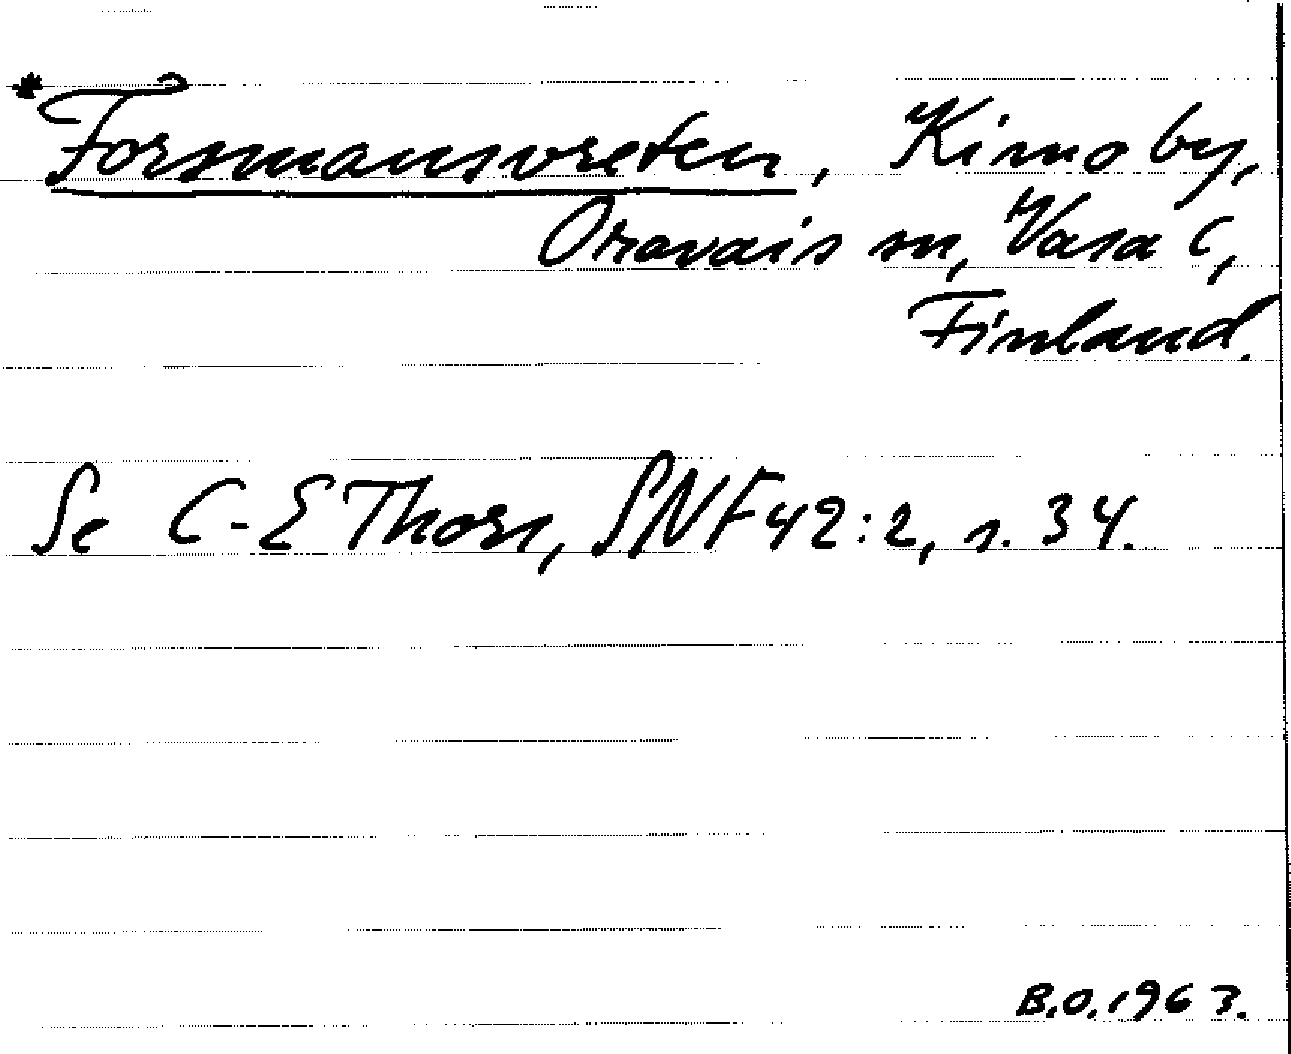 *Formansvreten, Kimo by,
Oravais sn, Vasa l,
Finland.
Se C-E Thors, SNF 42:2, s. 34.
B.O. 1963.